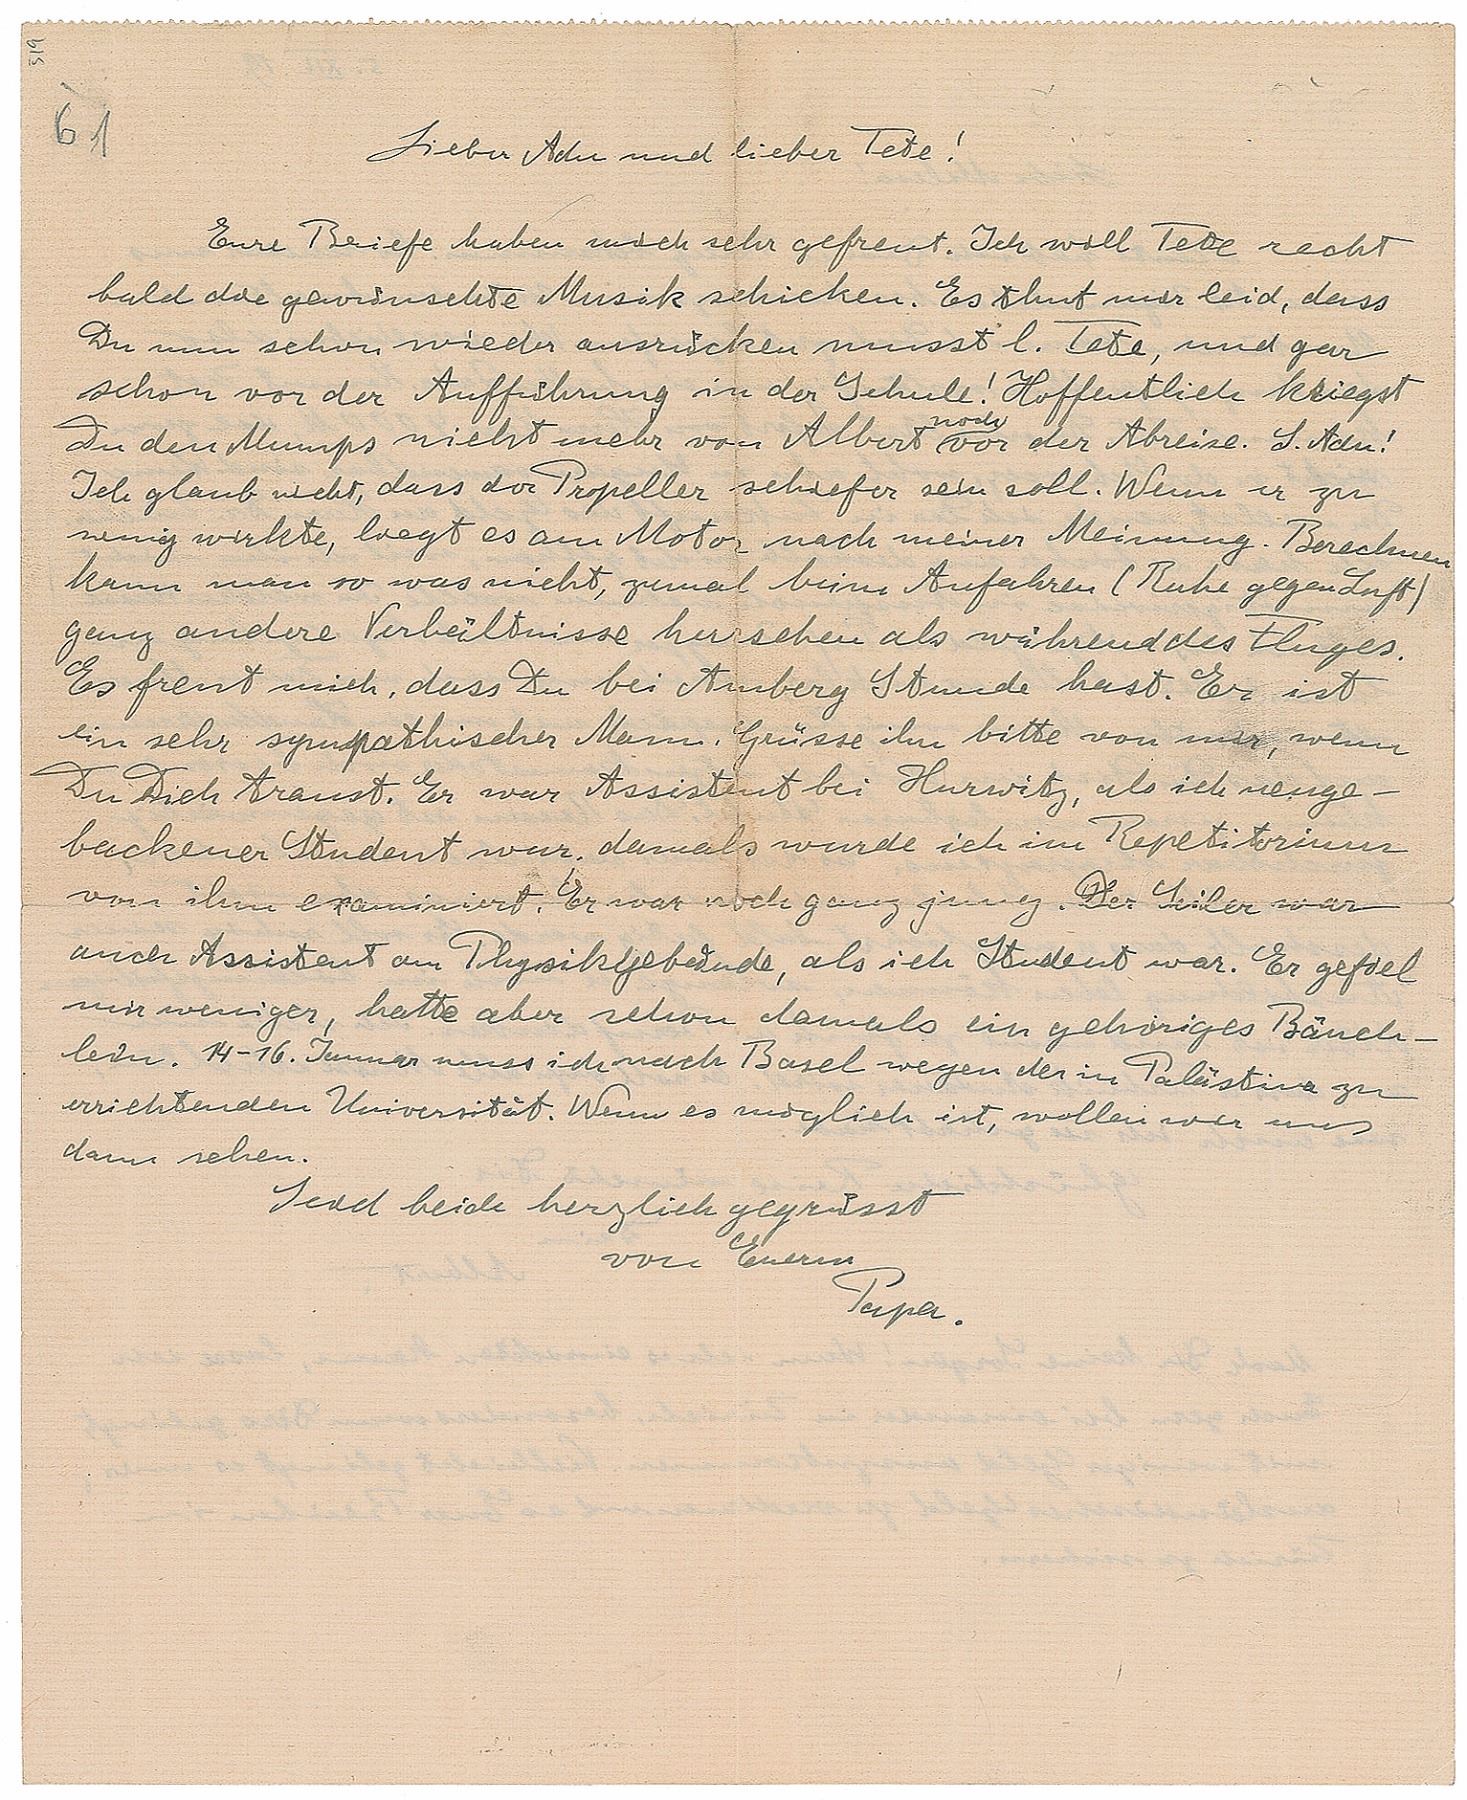 519
61
Lieber Adu und lieber Tete!
Eure Briefe haben mich sehr gefreut. Ich will Tete recht
bald die gewünschte Musik schicken. Es thut mir leid, dass
Du nun schon wieder ausrücken musst l. Tete, und gar
schon vor der Aufführung in der Schule! Hoffentlich kriegst
Du den Mumps nicht mehr von Albert noch vor der Abreise. L. Adu!
Ich glaub nicht, dass der Propeller schiefer sein soll. Wenn er zu
wenig wirkte, liegt es am Motor nach meiner Meinung. Berechnen
kann man so was nicht, zumal beim Anfahren (Ruhe gegen Luft)
ganz andere Verhältnisse herrschen als während des Fluges.
Es freut mich, dass Du bei Amberg Stunde hast. Er ist
ein sehr sympathischer Mann. Grüsse ihn bitte von mir, wenn
Du Dich traust. Er war Assistent bei Hurwitz, als ich neuge-
backener Student war. damals wurde ich im Repetitorium
von ihm examiniert. Er war noch ganz jung. Der Seiler war
auch Assistent am Physikgebäude, als ich Student war. Er gefiel
mir weniger, hatte aber schon damals ein gehöriges Bäuch-
lein. 14-16. Januar muss ich nach Basel wegen der in Palästina zu
errichtenden Universität. Wenn es möglich ist, wollen wir uns
dann sehen.
Seid beide herzlich gegrüsst
von Euerm
Papa.